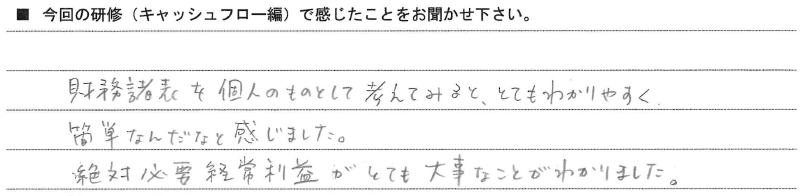 ■ 今回の研修（キャッシュフロー編）で感じたことをお聞かせ下さい。
財務諸表を個人のものとして考えてみると、とてもわかりやすく
簡単なんだなと感じました。
絶対必要経常利益がとても大事なことがわかりました。